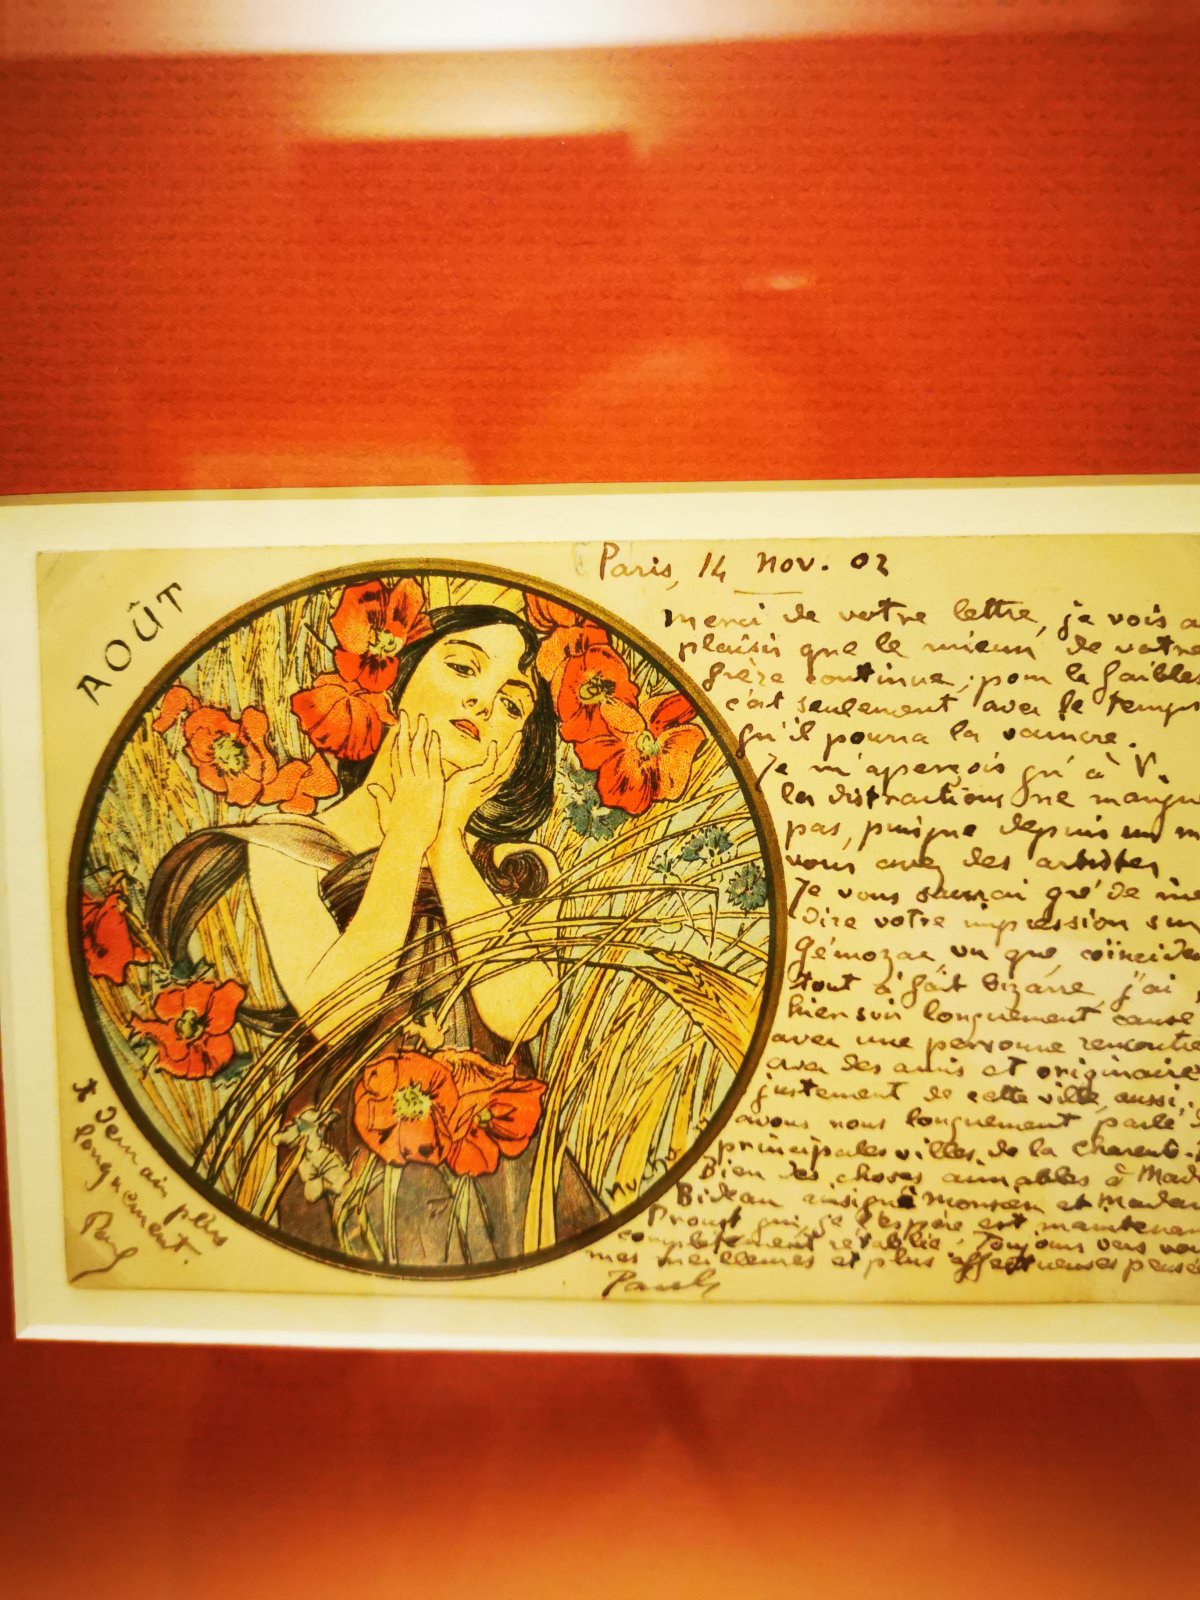 AOÛT
Paris, 14 Nov. 02
Merci de votre lettre, je vois a
plaisir que le mieux de votre
frère continue; pour la faibles
c'est seulement avec le temps
qu'il pourra la vaincre.
Je m'aperçois qu'à V.
les distractions ne manqu
pas, puisque depuis un m
vous avez des artistes
Je vous saurai gré de me
dire votre impression sur
Gémozac vu que, coïnciden
tout à fait bizarre, j'ai
hier soir longuement causé
avec une personne rencontré
avec des amis et originaire
justement de cette ville, aussi,
avons nous longuement parlé
principales villes de la Charente.
Bien des choses aimables à Mad
Bideau ainsi qu'à Monsieur et Madam
Proust qui, je l'espère est maintenan
complètement rétablie. Toujours vers vou
mes meilleures et plus affectueuses pensé
Paul
Mucha
A demain plus
longuement.
Paul